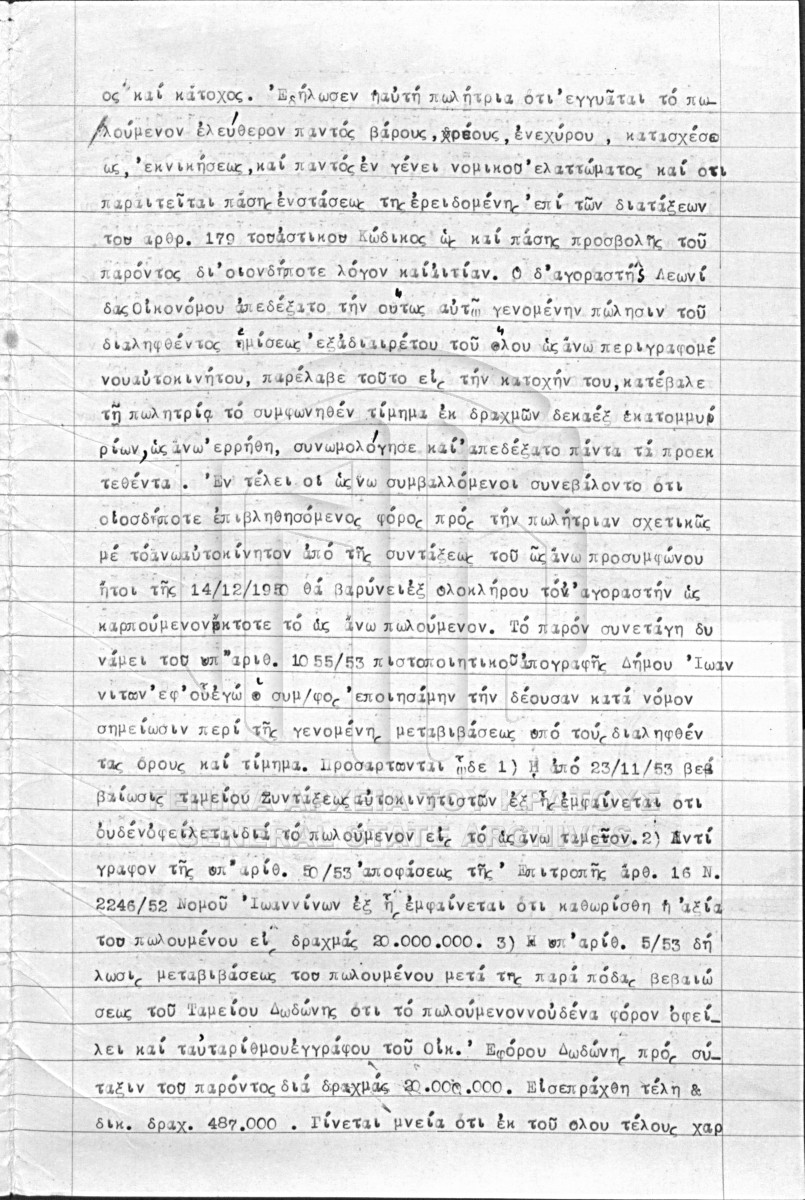 ος καί κάτοχος. Ἐδήλωσεν ἡ αὐτή πωλήτρια ὅτι ἐγγυᾶται τό πω_
λούμενον ἐλεύθερον παντός βάρους, χρέους, ἐνεχύρου, κατασχέσε
ως, ἐκνικήσεως, καί παντός ἐν γένει νομικοῦ ἐλαττώματος καί ὅτι
παραιτεῖται πάσης ἐνστάσεως τῆς ἐρειδομένης ἐπί τῶν διατάξεων
του αρθρ. 179 του ἀστικου Κώδικος ὡς καί πάσης προσβολῆς τοῦ
παρόντος δι' οιονδήποτε λόγον καί αἰτίαν. Ο δ' αγοραστής Λεωνί
δας Οἰκονόμου ἀπεδέξατο τήν οὕτως αὐτῷ γενομένην πώλησιν τοῦ
διαληφθέντος ἡμίσεως ἐξ ἀδιαιρέτου τοῦ ὅλου ὡς ἄνω περιγραφομέ
νου αὐτοκινήτου, παρέλαβε τοῦτο εἰς τήν κατοχήν του, κατέβαλε
τῇ πωλητρίᾳ τό συμφωνηθέν τίμημα ἐκ δραχμῶν δεκαέξ ἑκατομμυρ
ρίων, ὡς ἄνω ἐρρήθη, συνωμολόγησε καί ἀπεδέξατο πάντα τά προεκ
τεθέντα . Ἐν τέλει οἱ ὡς ἄνω συμβαλλόμενοι συνεβάλοντο ὅτι
οἱοσδήποτε ἐπιβληθησόμενος φόρος πρός τήν πωλήτριαν σχετικῶς
μέ τό ἄνω αὐτοκίνητον ἀπό τῆς συντάξεως τοῦ ὡς ἄνω προσυμφώνου
ἤτοι τῆς 14/12/1950 θά βαρύνει ἐξ ὁλοκλήρου τόν ἀγοραστήν ὡς
καρπούμενον ἔκτοτε τό ὡς ἄνω πωλούμενον. Τό παρόν συνετάγη δυ
νάμει του ὑπ' ἀριθ. 1055/53 πιστοποιητικοῦ ἀπογραφῆς Δήμου Ἰωαν
νιτων ἐφ' οὗ ἐγώ ὁ συμ/φος ἐποιησάμην τήν δέουσαν κατά νόμον
σημείωσιν περί τῆς γενομένης μεταβιβάσεως ὑπό τούς διαληφθέν
τας ὅρους καί τίμημα. Προσαρτωνται ᾧδε 1) Η ἀπό 23/11/53 βεβ
βαίωσις ταμείου Συντάξεως αὐτοκινητιστῶν ἐξ ἧς ἐμφαίνεται οτι
ὀυδέν ὀφείλεται διά τό πωλούμενον εἰς τό ὡς ἄνω ταμεῖον. 2) Αντί
γραφον τῆς ὑπ' ἀρίθ. 50/53 ἀποφάσεως τῆς Ἐπιτροπῆς ἄρθ. 16 Ν.
2246/52 Νομοῦ Ἰωαννίνων ἐξ ἧς ἐμφαίνεται ὅτι καθωρίσθη ἡ ἀξία
του πωλουμένου εἰς δραχμάς 20.000.000. 3) Η ὑπ' ἀρίθ. 5/53 δή
λωσις μεταβιβάσεως του πωλουμένου μετά της παρά πόδας βεβαιώ
σεως τοῦ Ταμείου Δωδώνης ὅτι τό πωλούμενον νουδένα φόρον ὀφεί_
λει καί ταὐταρίθμου ἐγγράφου τοῦ Οἰκ. Ἐφόρου Δωδώνης πρός σύ_
ταξιν του παρόντος διά δραχμάς 20.000.000. Εἰσεπράχθη τέλη &
δικ. δραχ. 487.000 . Γίνεται μνεία ὅτι ἐκ τοῦ ὅλου τέλους χαρ
ΓΕΝΙΚΑ ΑΡΧΕΙΑ ΤΟΥ ΚΡΑΤΟΥΣ
GENERAL STATE ARCHIVES